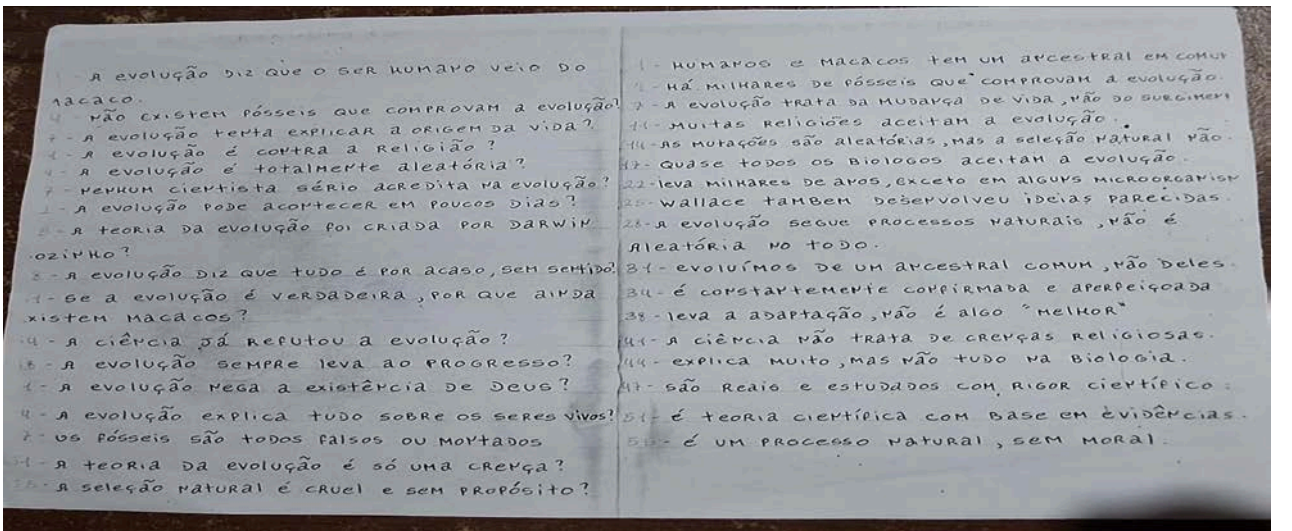 A evolução diz que o ser humano veio do
macaco.
Não existem fósseis que comprovam a evolução?
7 - A evolução tenta explicar a origem da vida?
A evolução é contra a religião?
A evolução é totalmente aleatória?
7 - Nenhum cientista sério acredita na evolução?
A evolução pode acontecer em poucos dias?
A teoria da evolução foi criada por Darwin
sozinho?
8 - A evolução diz que tudo é por acaso, sem sentido?
1 - Se a evolução é verdadeira, por que ainda
existem macacos?
4 - A ciência já refutou a evolução?
8 - A evolução sempre leva ao progresso?
1 - A evolução nega a existência de Deus?
4 - A evolução explica tudo sobre os seres vivos?
7 - Os fósseis são todos falsos ou montados
51 - A teoria da evolução é só uma crença?
A seleção natural é cruel e sem propósito?
1 - Humanos e macacos tem um ancestral em comum
Há milhares de fósseis que comprovam a evolução.
7 - A evolução trata da mudança de vida, não do surgiment
11 - Muitas religiões aceitam a evolução.
14 - As mutações são aleatórias, mas a seleção natural não.
17 - Quase todos os biologos aceitam a evolução.
22 - leva milhares de anos, exceto em alguns microorganism
25 - Wallace tambem desenvolveu ideias parecidas.
28 - A evolução segue processos naturais, não é
aleatória no todo.
31 - evoluímos de um ancestral comum, não deles.
34 - é constantemente confirmada e aperfeiçoada
38 - leva a adaptação, não é algo "melhor"
41 - A ciência não trata de crenças religiosas.
44 - explica muito, mas não tudo na biologia.
47 - são reais e estudados com rigor científico.
51 - é teoria científica com base em evidências.
é um processo natural, sem moral.